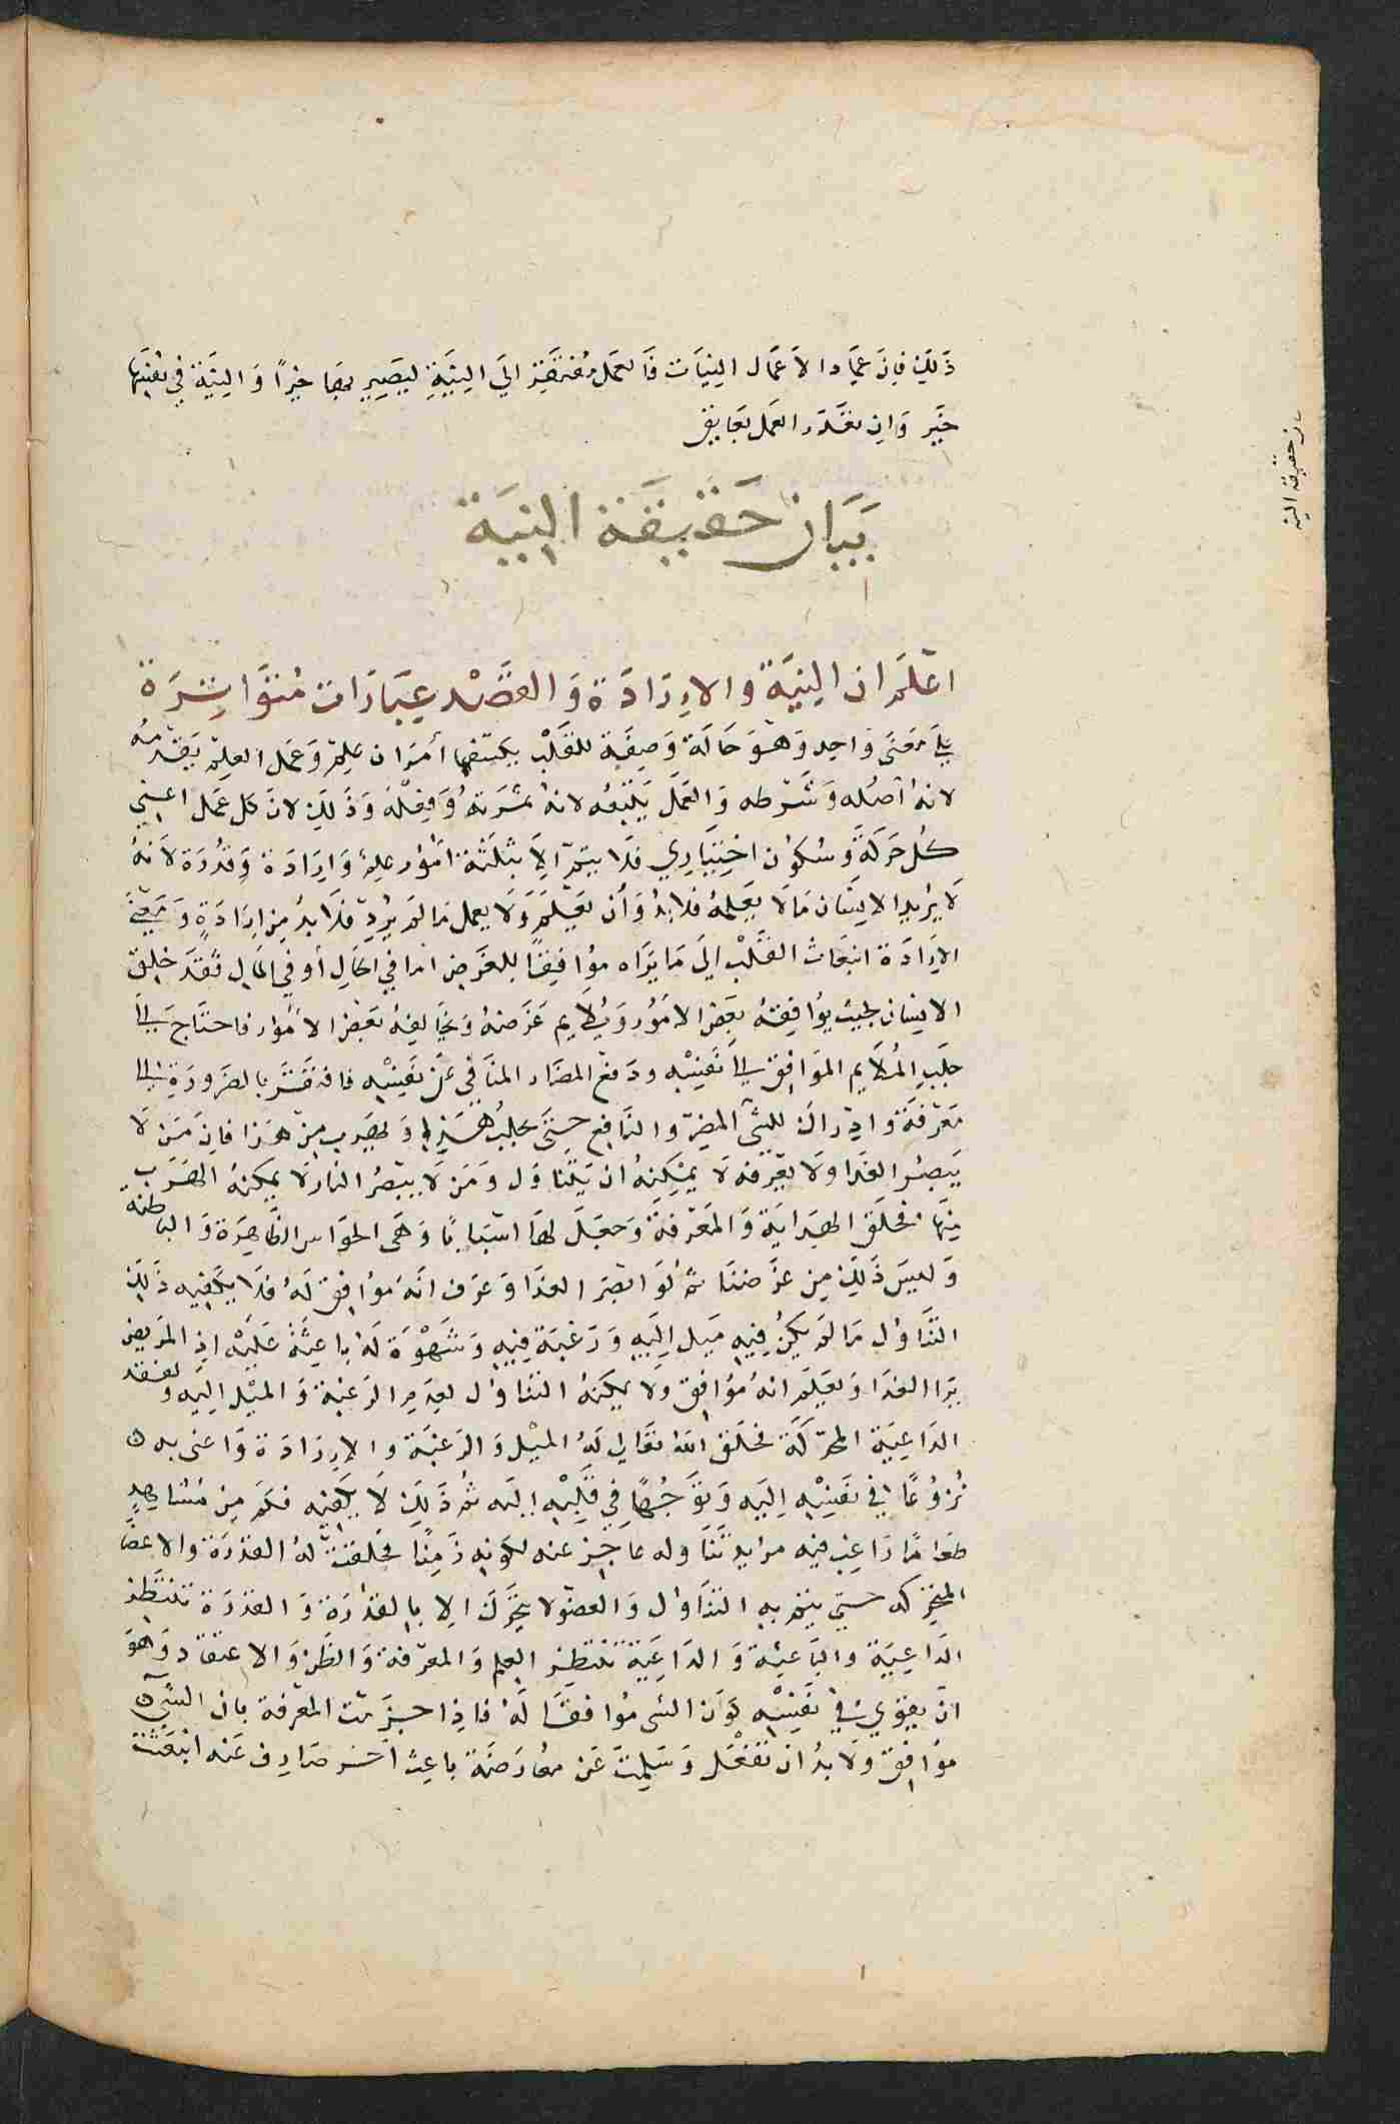 ذَلِكَ فَاِنَّ عِمَادَ الاَعْمَال النِيَات فَالعَمَل مُفتَقِر الَى النِيَّةِ ليَصِير بهَا خيرًا وَالنِيَّة فِي نفسِهَا
خَيْر وَان تعَذَّر العَمل بعَايق
بَيَان حَقيقَة النِيَة
بيان حقيقة النية
اعْلَم ان النِيَّة والاِرَادَة وَالقَصْد عِبَارَات مُتوَارِدَة
عَلَى مَعنَى وَاحِد وَهوَ حَالَة وَصِفَة للقَلْب يكتنفها أمرَان عِلم وَعَمل العِلم يَقدمُه
لانهُ اصْله وَشَرْطه وَالعَمَل يَتْبَعُه لانهُ ثمَرَتهُ وَفِعْلهُ وَذَلِكَ لانَّ كل عَمل اعني
كُل حَرَكَة وَسُكوُن اختِيَارِي فَلا يتمّ الاَ بثلثة امُور عِلم وَارَادَة وَقُدْرَة لاَنهُ
لاَ يُريد الانسَان مَا لاَ يَعْلمهُ فلا بدُ وَأن يَعْلَمَ وَلاَ يعمل مَا لم يُرِد فَلا بدُ مِن ارَادَةٍ وَمَعْنى
الاِرَادَة انبعَاث القَلْب الَى مَا يَرَاه موُافِقًا للغَرَض امّا في الحَالِ أو في المالِ فَقَد خلق
الانسَان بحيث يوُافِقهُ بَعض الامُور وَيُلايم غَرَضهُ وَيخَالِفهُ بَعْض الامُور فاحتَاج الىَ
جلَبِ المُلاَيم الموَافِق الىَ نَفسْهِ ودَفع الضَار المنَافي عَن نفَسْهِ فافتَقَر بالضَرورَةِ الىَ
مَعْرفَة وَادِرَاك للشَّىْ المضِرّ والنَافِع حَتَّى يجلبُ هَذا وَيهَرب مِنْ هَذا فاِن مَنْ لاَ
يَبصِرُ الغذَا ولاَ يعرفه لاَ يمْكِنهُ ان يَتناوَل وَمَن لاَ يبْصرُ النَار لاَ يمكنهُ الهَرَب
مِنهَا فخَلَق الهِدَايَة وَالمَعرفَة وَجَعَلَ لهَا اسْبَابًا وَهَى الحوَاس الظَاهِرَة وَالبَاطنة
وَليسَ ذَلِكَ مِن غرَضنَا ثم لَوَ ابصَر الغذَا وَعَرَف انّهُ موُافِق لَهُ فَلاَ يكفِيه ذَلِكَ
التنَاوُل مَا لَم يكن فِيهِ مَيل اِلَيهِ وَرَغبَة فِيهِ وَشَهْوَة لَهُ باعِثَة عَلَيْه اذِ المَريض
يَرَا الغذَا وَيَعْلَم انهُ موُافِق ولا يمكنهُ التنَاوُل لِعَدَمِ الرَغبَة وَالمَيْل اِليَهِ ولفقد
الدَاعِيَة المحرّكَة فخلَق اللّهُ تعَالى لَهُ الميْل وَالرَغبَة وَالاِرَادَة وَاعنى به
نُزوُعًا في نفَسِهِ اِليَهِ وَتوَجُهًا فِي قَلْبِهِ اليَه ثمُ ذَلِكَ لاَ يكفيه فَكَم مِن مُشاهِدٍ
طَعامًا رَاغِبٍ فيه مريد تنَاوله عاجِز عنه لكوَنهِ زَمِنًا فخلقَتْ لهُ القدْرَة والاعضَا
المتحركه حَتّى يتم بهِ التنَاوُل وَالعضوُلا يتحرَّك الا بالقدْرَة وَالقدْرَة تَنتظر
الدَاعِيَة والبَاعِثة وَالدَاعِيَة تَنتظِر العِلم وَالمَعرفة وَالظَن وَالاعتقاد وَهوَ
ان يقوَي في نَفسْهِ كوَن الشى موُافقًا لَهُ فاذا جزَمَت المَعرفة بان الشَّى
موُافِق ولاَ بدُ ان تفْعَل وَسَلِمت عَن معُارَضَة باعِث اخر صَارِف عَنه انبعَثت